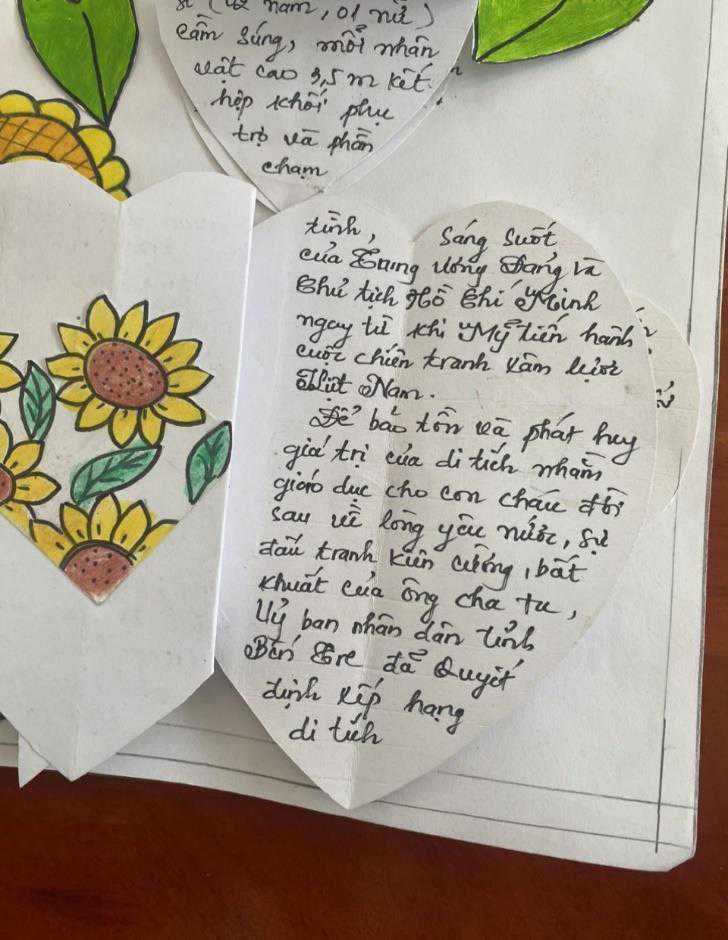 sĩ (02 nam, 01 nữ)
cầm súng, mỗi nhân
vật cao 3,5m kết
hợp khối phụ
trợ và phần
chạm
tình, sáng suốt
của Trung ương Đảng và
Chủ tịch Hồ Chí Minh
ngay từ khi Mỹ tiến hành
cuộc chiến tranh xâm lược
Việt Nam.
Để bảo tồn và phát huy
giá trị của di tích nhằm
giáo dục cho con cháu đời
sau về lòng yêu nước, sự
đấu tranh kiên cường, bất
khuất của ông cha ta,
Uỷ ban nhân dân tỉnh
Bến Tre đã Quyết
định xếp hạng
di tích